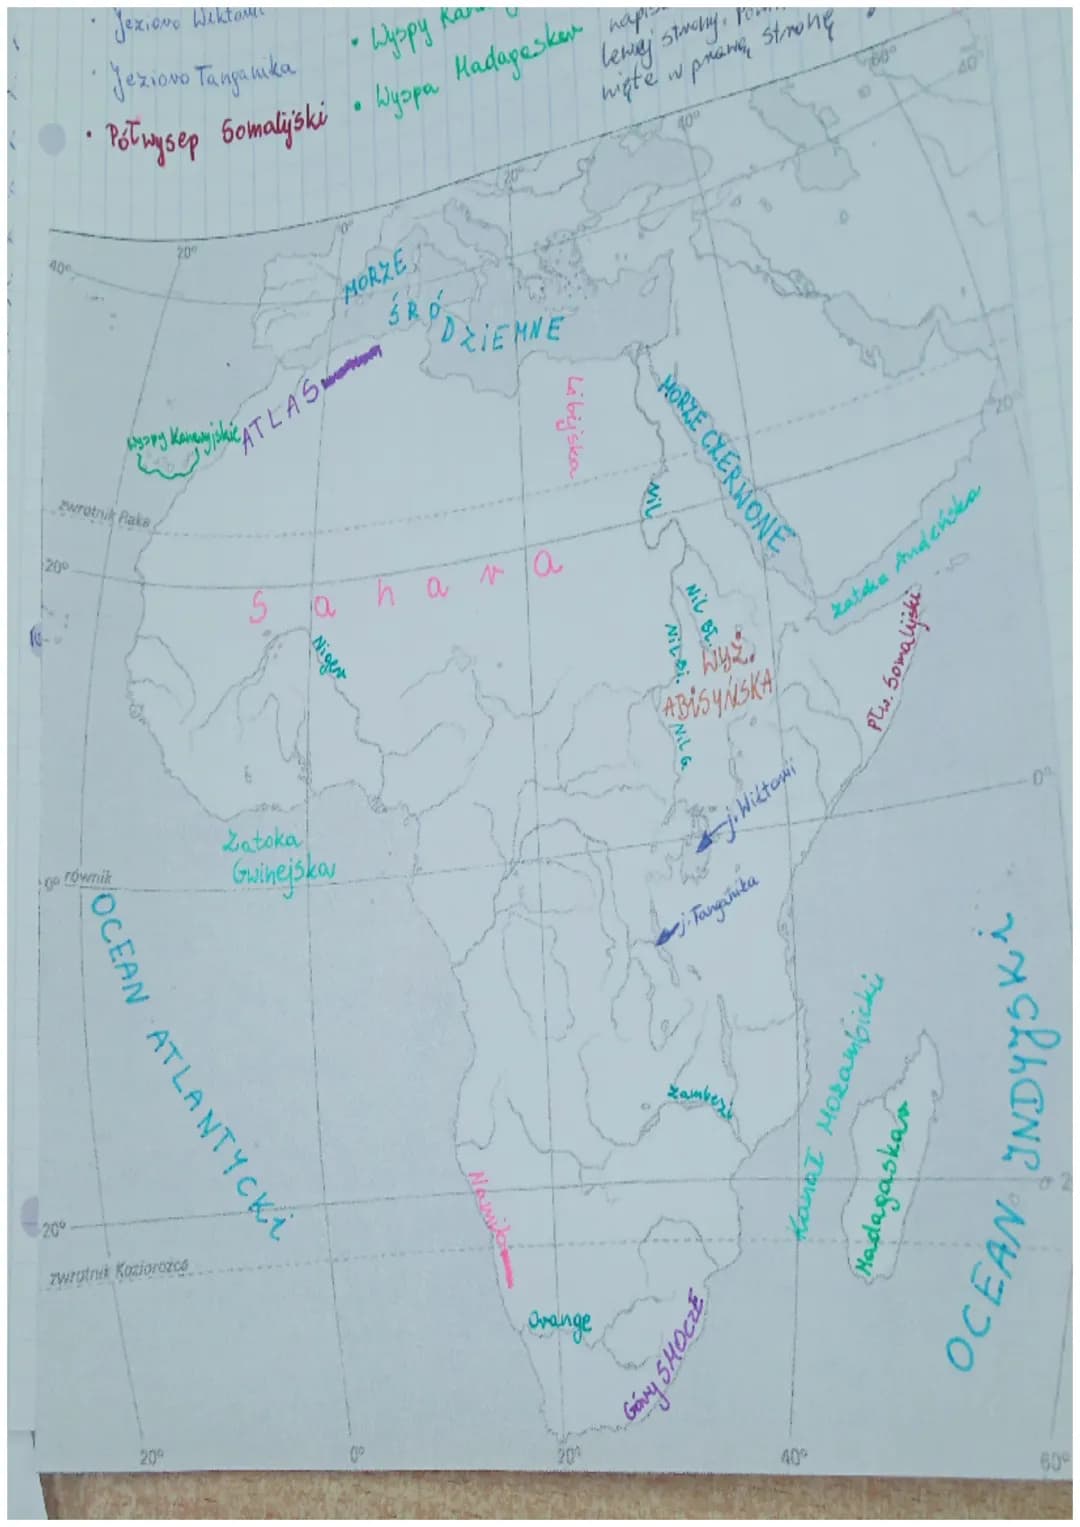 Jezioro Wiktorii
• Jezioro Tanganika
• Półwysep Somalijski
• Wyspy
• Wyspa Madagaskar
lewej strony.
w prawą stronę
20°
0°
20°
40°
60°
40°
40°
MORZE
ŚRÓ
DZIEMNE
ATLAS
Libijska
MORZE CZERWONE
Wyspy Kanaryjskie
20°
zwrotnik Raka
Nil
Zatoka Andeńska
20°
Sahara
Nil Bł.
Nil Bi.
Niger
WYŻ.
ABISYŃSKA
Płw. Somalijski
Nil G.
j. Wiktorii
0°
Zatoka
Gwinejska
0° równik
j. Tanganika
OCEAN ATLANTYCKI
OCEAN INDYJSKI
Kanał Mozambicki
Zambezi
Madagaskar
Namib
20°
zwrotnik Koziorożca
Orange
Góry SMOCZE
20°
0°
20°
40°
60°